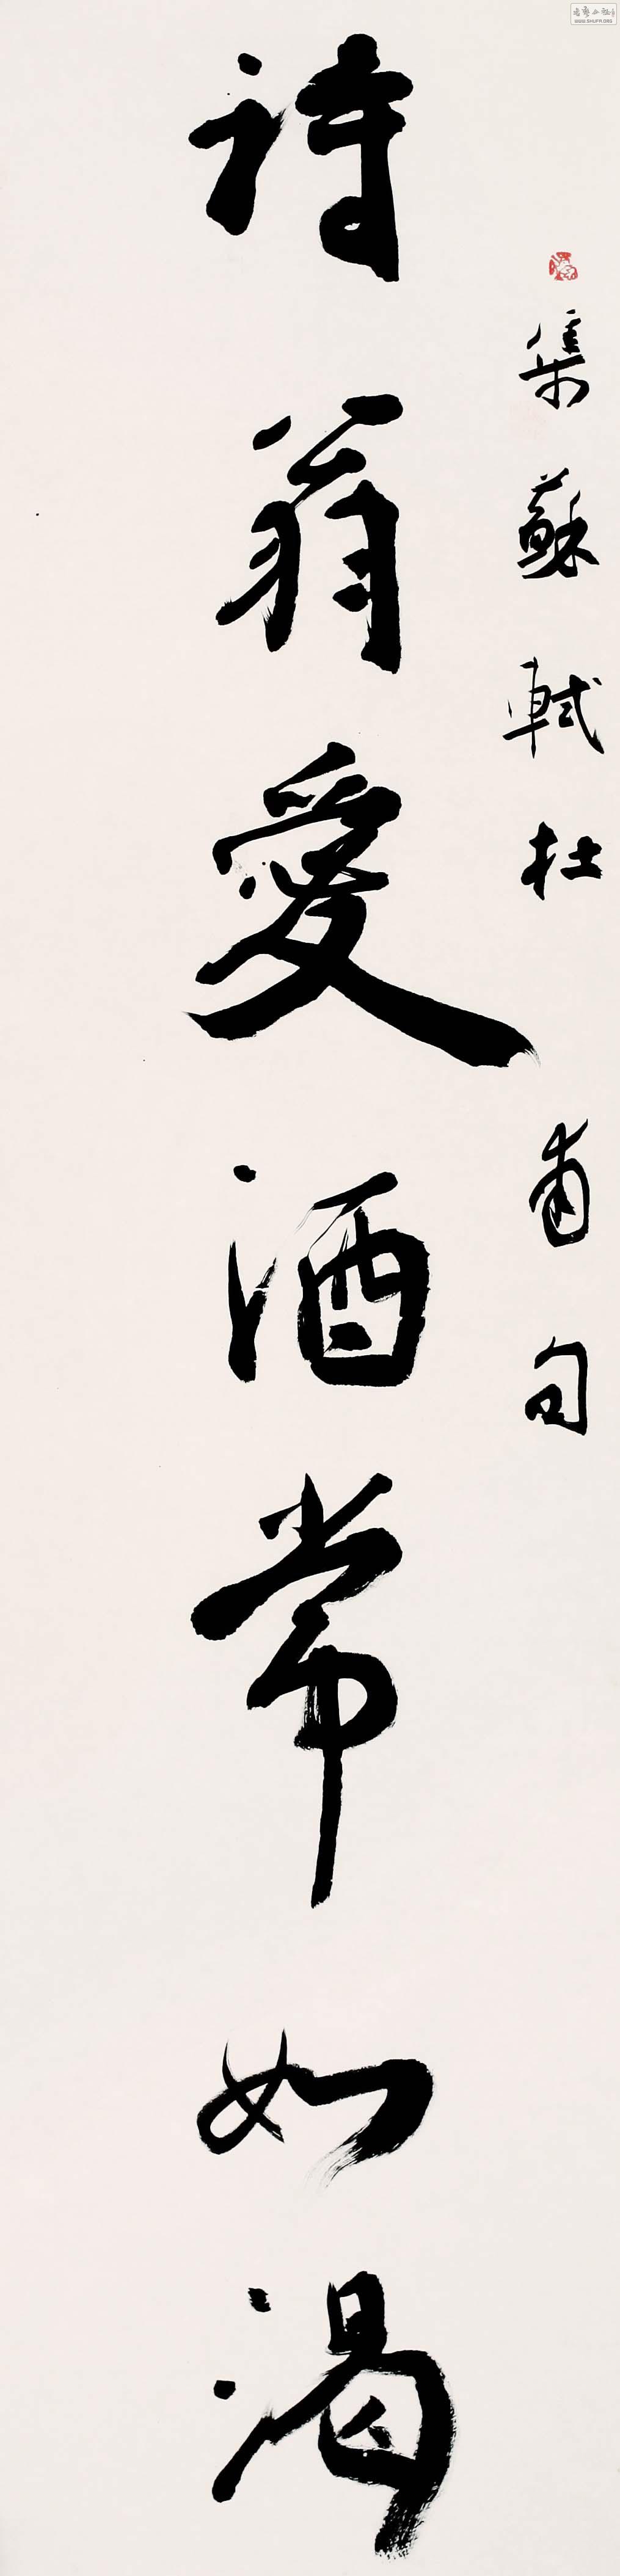 集蘇軾杜甫句
詩翁愛酒常如渴
WWW.SHUFFI.ORG